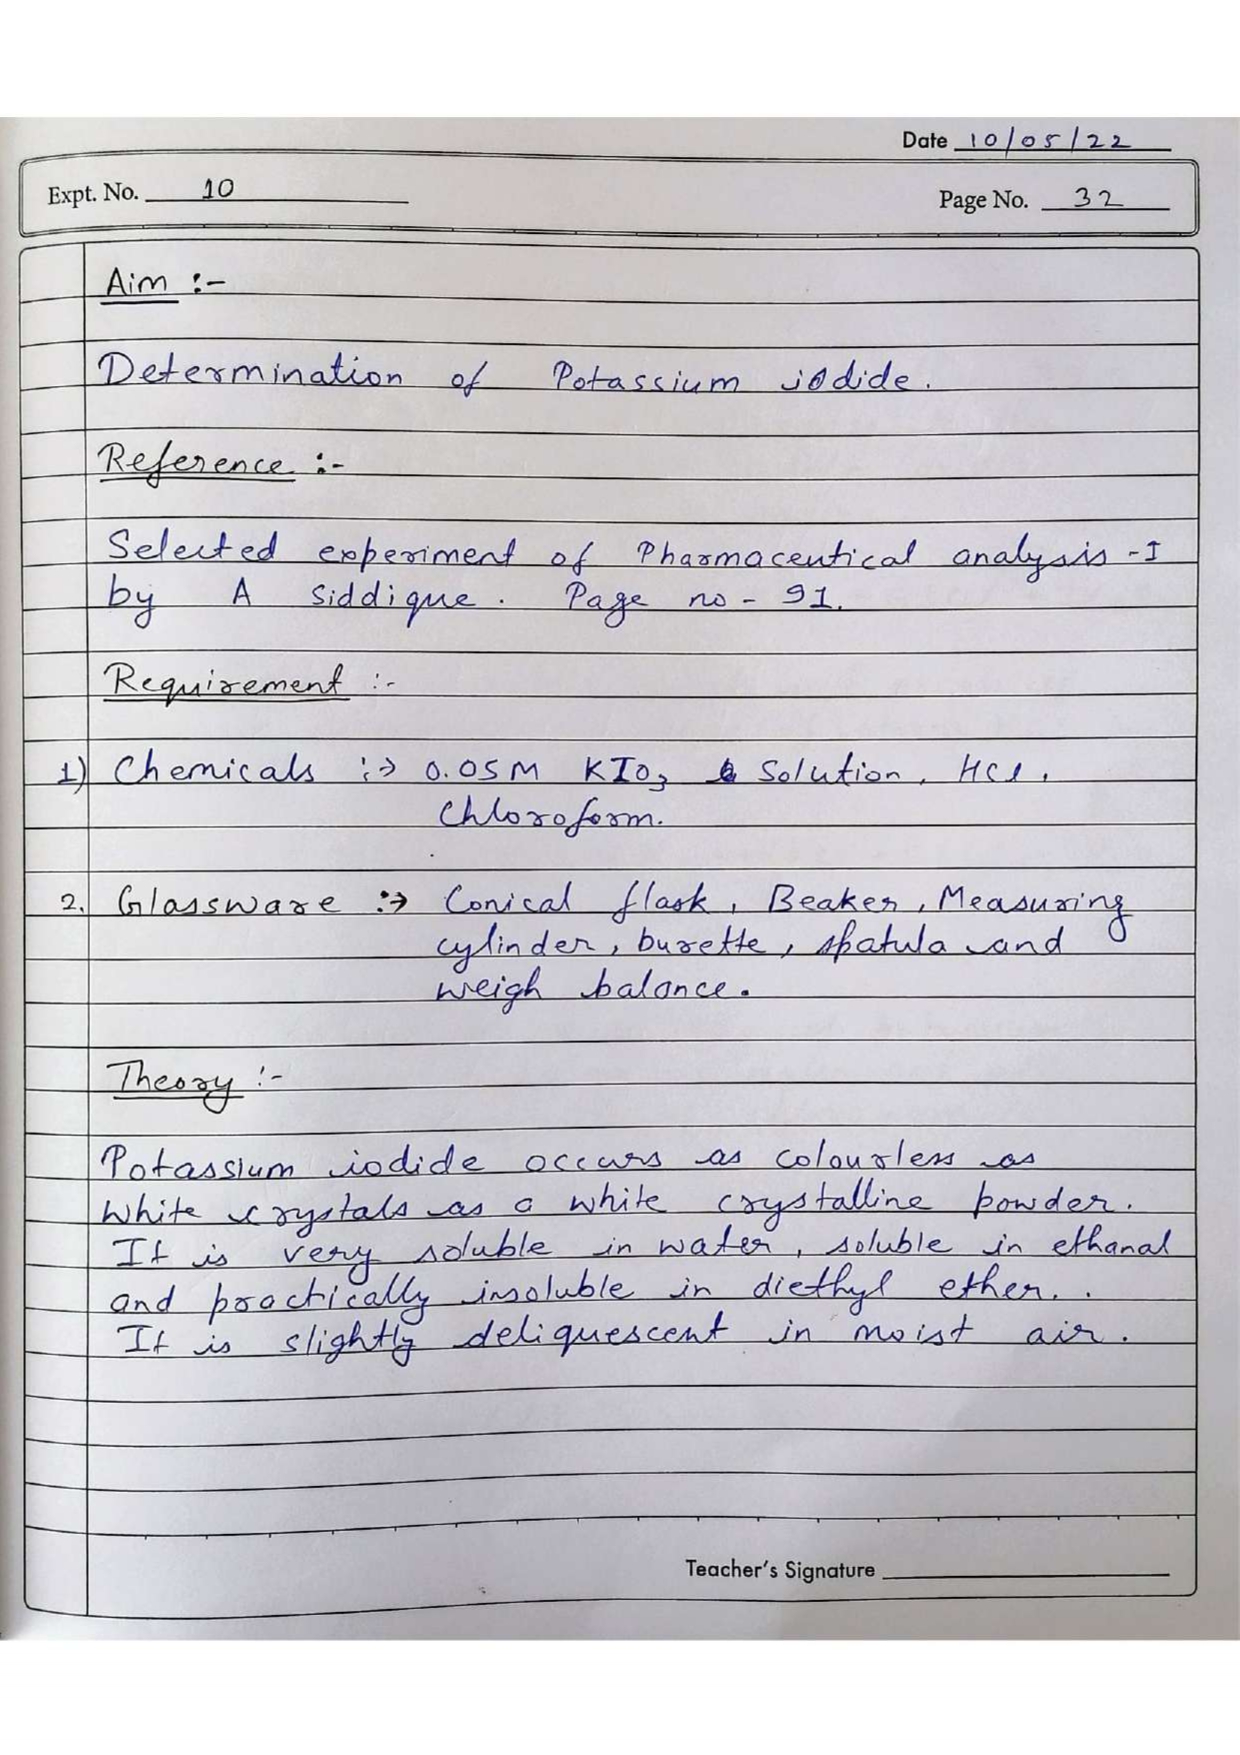 Date 10/05/22
Expt. No. 10
Page No. 32
Aim :-
Determination of Potassium iodide.
Reference :-
Selected experiment of Pharmaceutical analysis -I
by A Siddique. Page no - 91.
Requirement :-
1) Chemicals :→ 0.05M KIO₃ Solution, HCl,
Chloroform.
2. Glassware :→ Conical flask, Beaker, Measuring
cylinder, burette, spatula and
weigh balance.
Theory :-
Potassium iodide occurs as colourless as
White crystals as a white crystalline powder.
It is very soluble in water, soluble in ethanal
and practically insoluble in diethyl ether.
It is slightly deliquescent in moist air.
Teacher's Signature